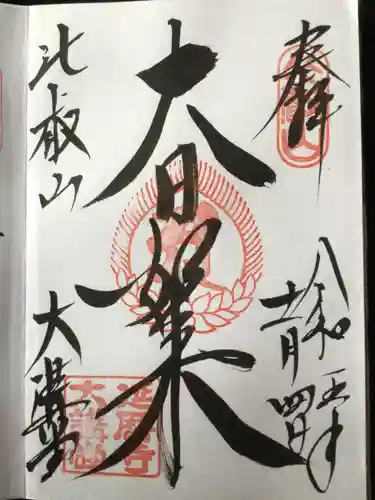 奉拝
令和五年
十一月四日
大日如来
比叡山
大講堂
延暦寺
大講堂